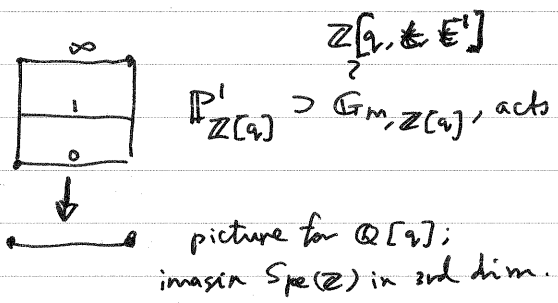 ∞
1
0
ℤ[q, t, t⁻¹]
ℙ¹_ℤ[q] ⊃ 𝔾_m,ℤ[q], acts
picture for ℚ[q];
imagin Spe(ℤ) in 3rd dim.